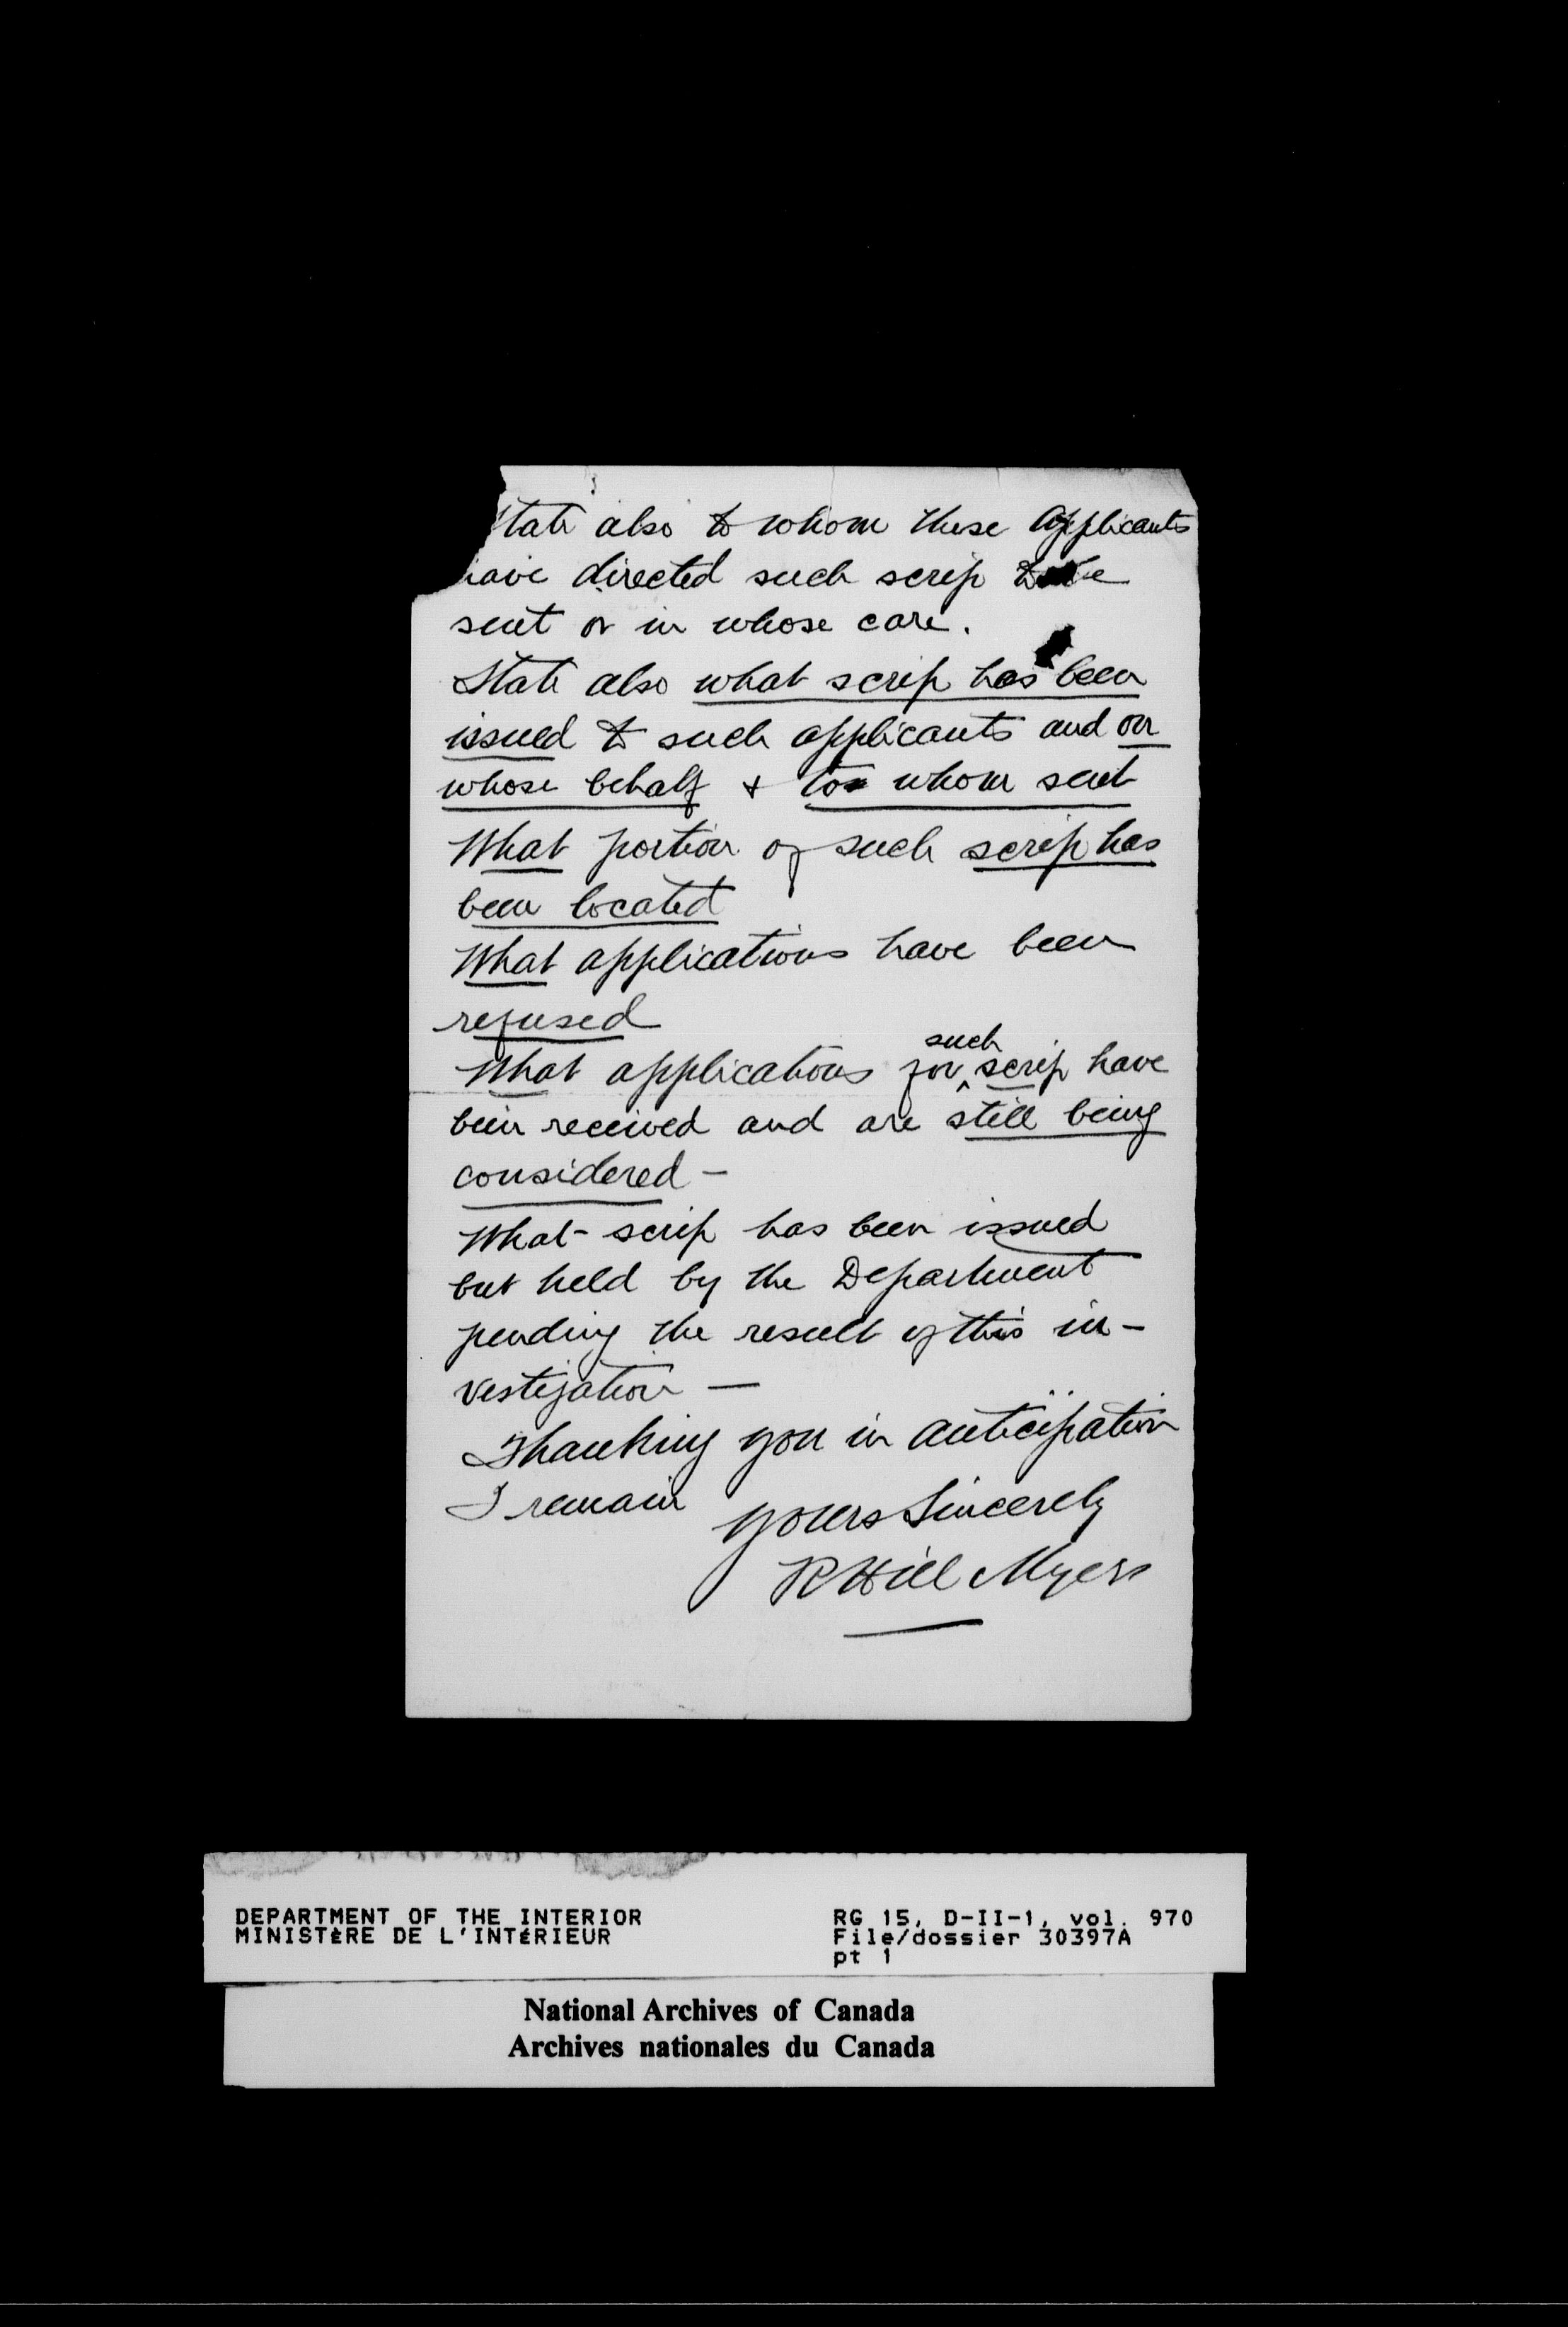 State also to whom these applicants
have directed such scrip to be
sent or in whose care.
State also what scrip has been
issued to such applicants and on
whose behalf & to whom sent
What portion of such scrip has
been located
What applications have been
refused
What applications for such scrip have
been received and are still being
considered –
What scrip has been issued
but held by the Department
pending the result of this in-
vestigation –
Thanking you in anticipation
I remain
yours Sincerely
R Hill Myers
DEPARTMENT OF THE INTERIOR
MINISTÈRE DE L'INTÉRIEUR
RG 15, D-II-1, vol. 970
File/dossier 30397A
pt 1
National Archives of Canada
Archives nationales du Canada